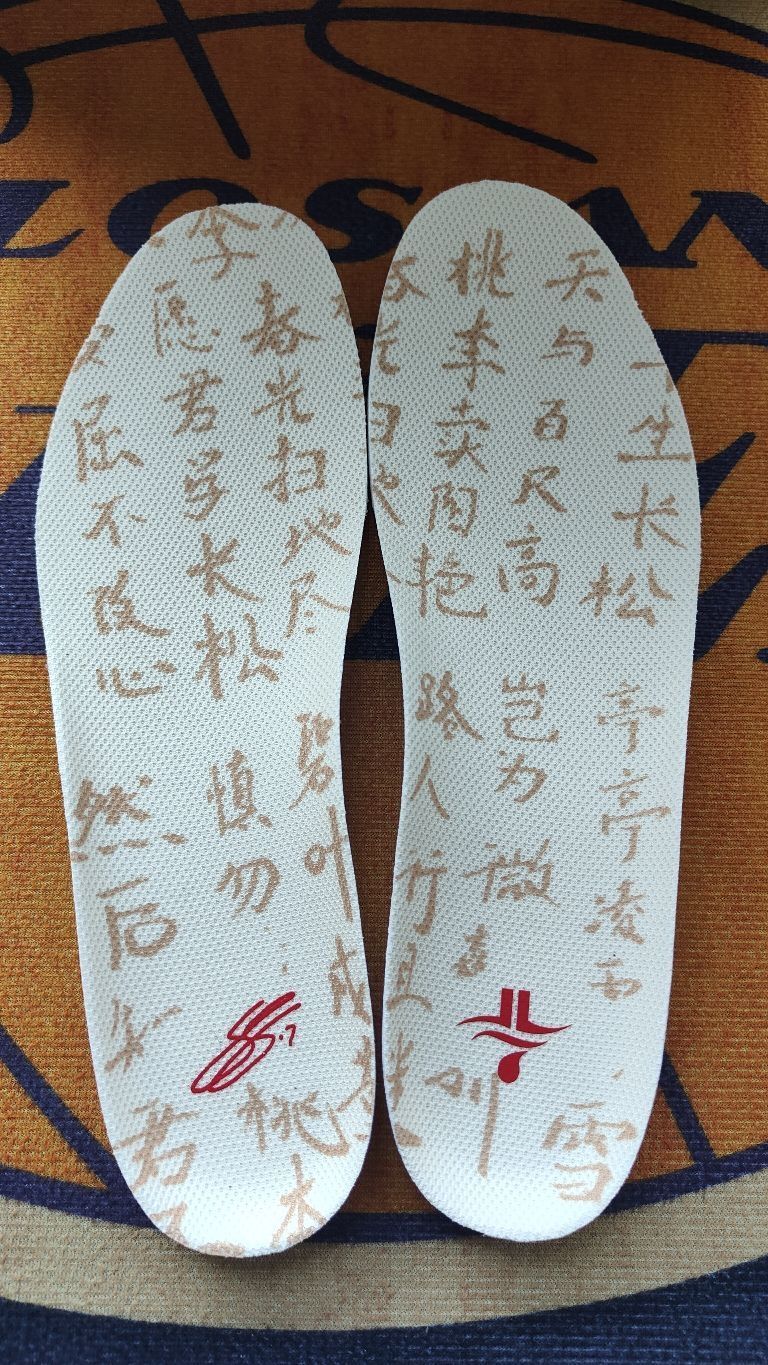 LOS AN
生长松亭亭凌雪
天与百尺高岂为微
桃李卖阳艳路人行且
春光扫地尽碧叶成
李
愿君学长松慎勿…桃李
屈不改心然后知君
.7